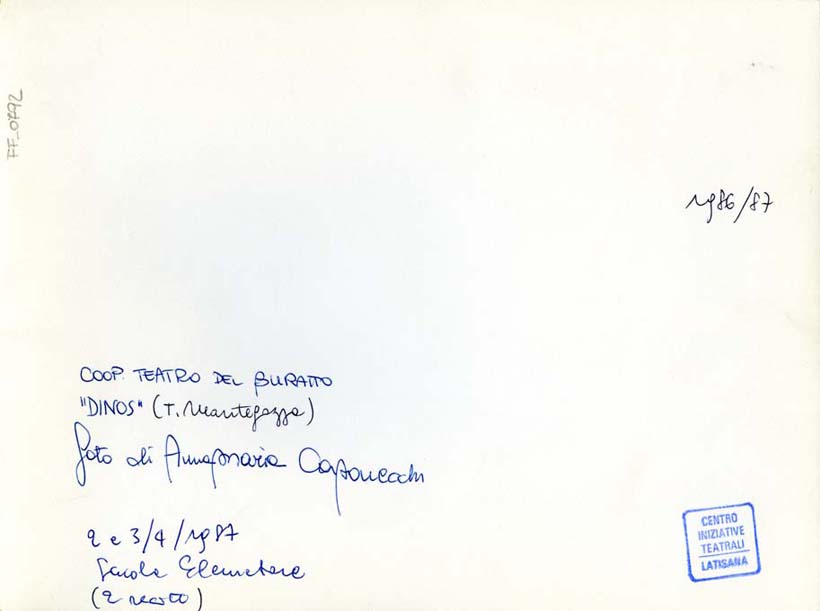 FF_0792
1986/87
COOP. TEATRO DEL BURATTO
"DINOS" (T. Mantegazza)
foto di Annamaria Caponecchi
2 e 3/4/1987
Scuola Elementare
(2
CENTRO
INIZIATIVE
TEATRALI
LATISANA